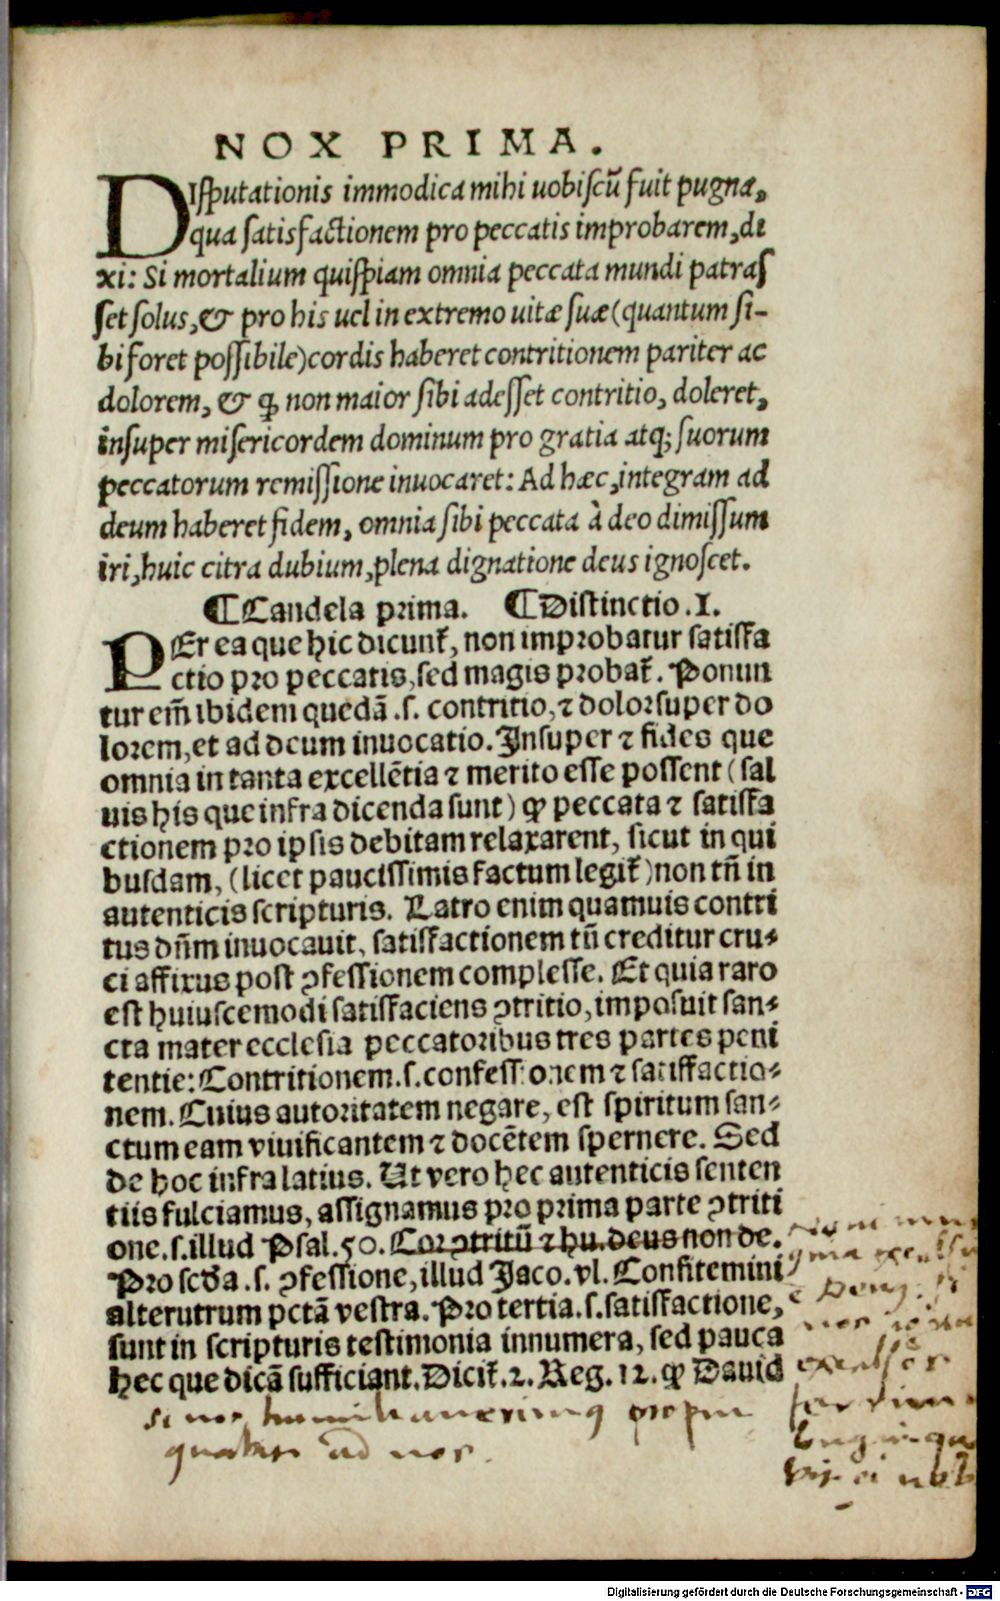 NOX PRIMA.
DIſputationis immodica mihi uobiſcū fuit pugna,
qua ſatisfactionem pro peccatis improbarem, di
xi: Si mortalium quiſpiam omnia peccata mundi patraſ
ſet ſolus, & pro his uel in extremo uitæ ſuæ (quantum ſi-
bi foret poſſibile) cordis haberet contritionem pariter ac
dolorem, & ꝙ non maior ſibi adeſſet contritio, doleret,
inſuper miſericordem dominum pro gratia atq; ſuorum
peccatorum remiſſione inuocaret: Ad hæc, integram ad
deum haberet fidem, omnia ſibi peccata à deo dimiſſum
iri, huic citra dubium, plena dignatione deus ignoſcet.
¶Candela prima. ¶Distinctio .I.
PEr ea que hic dicunt̄, non improbatur satisfa
ctio pro peccatis, sed magis probat̄. Ponun
tur em̄ ibidem quedā .s. contritio, ⁊ dolor super do
lorem, et ad deum inuocatio. Insuper ⁊ fides que
omnia in tanta excellētia ⁊ merito esse possent (sal
uis his que infra dicenda sunt) ꝙ peccata ⁊ satisfa
ctionem pro ipsis debitam relaxarent, sicut in qui
busdam, (licet paucissimis factum legit̄) non tn̄ in
autenticis scripturis. Latro enim quamuis contri
tus dn̄m inuocauit, satisfactionem tn̄ creditur cru⸗
ci affixus post ꝯfessionem complesse. Et quia raro
est huiuscemodi satisfaciens ꝯtritio, imposuit san⸗
cta mater ecclesia peccatoribus tres partes peni
tentie: Contritionem .s. confessionem ⁊ satisfactio⸗
nem. Cuius autoritatem negare, est spiritum san⸗
ctum eam viuificantem ⁊ docētem spernere. Sed
de hoc infra latius. Ut vero hec autenticis senten
tiis fulciamus, assignamus pro prima parte ꝯtriti
one .s. illud Psal. 50. Cor ꝯtritū ⁊ hu. deus non de.
Pro scd̄a .s. ꝯfessione, illud Jaco. vl. Confitemini
alterutrum pctā vestra. Pro tertia .s. satisfactione,
sunt in scripturis testimonia innumera, sed pauca
hec que dicā sufficiant. Dicit̄. 2. Reg. 12. ꝙ Dauid
si nos
ad nos.
Digitalisierung gefördert durch die Deutsche Forschungsgemeinschaft - DFG